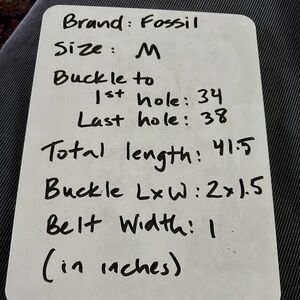 Brand: Fossil
Size: M
Buckle to
1st hole: 34
Last hole: 38
Total length: 41.5
Buckle LxW: 2x1.5
Belt Width: 1
(in inches)